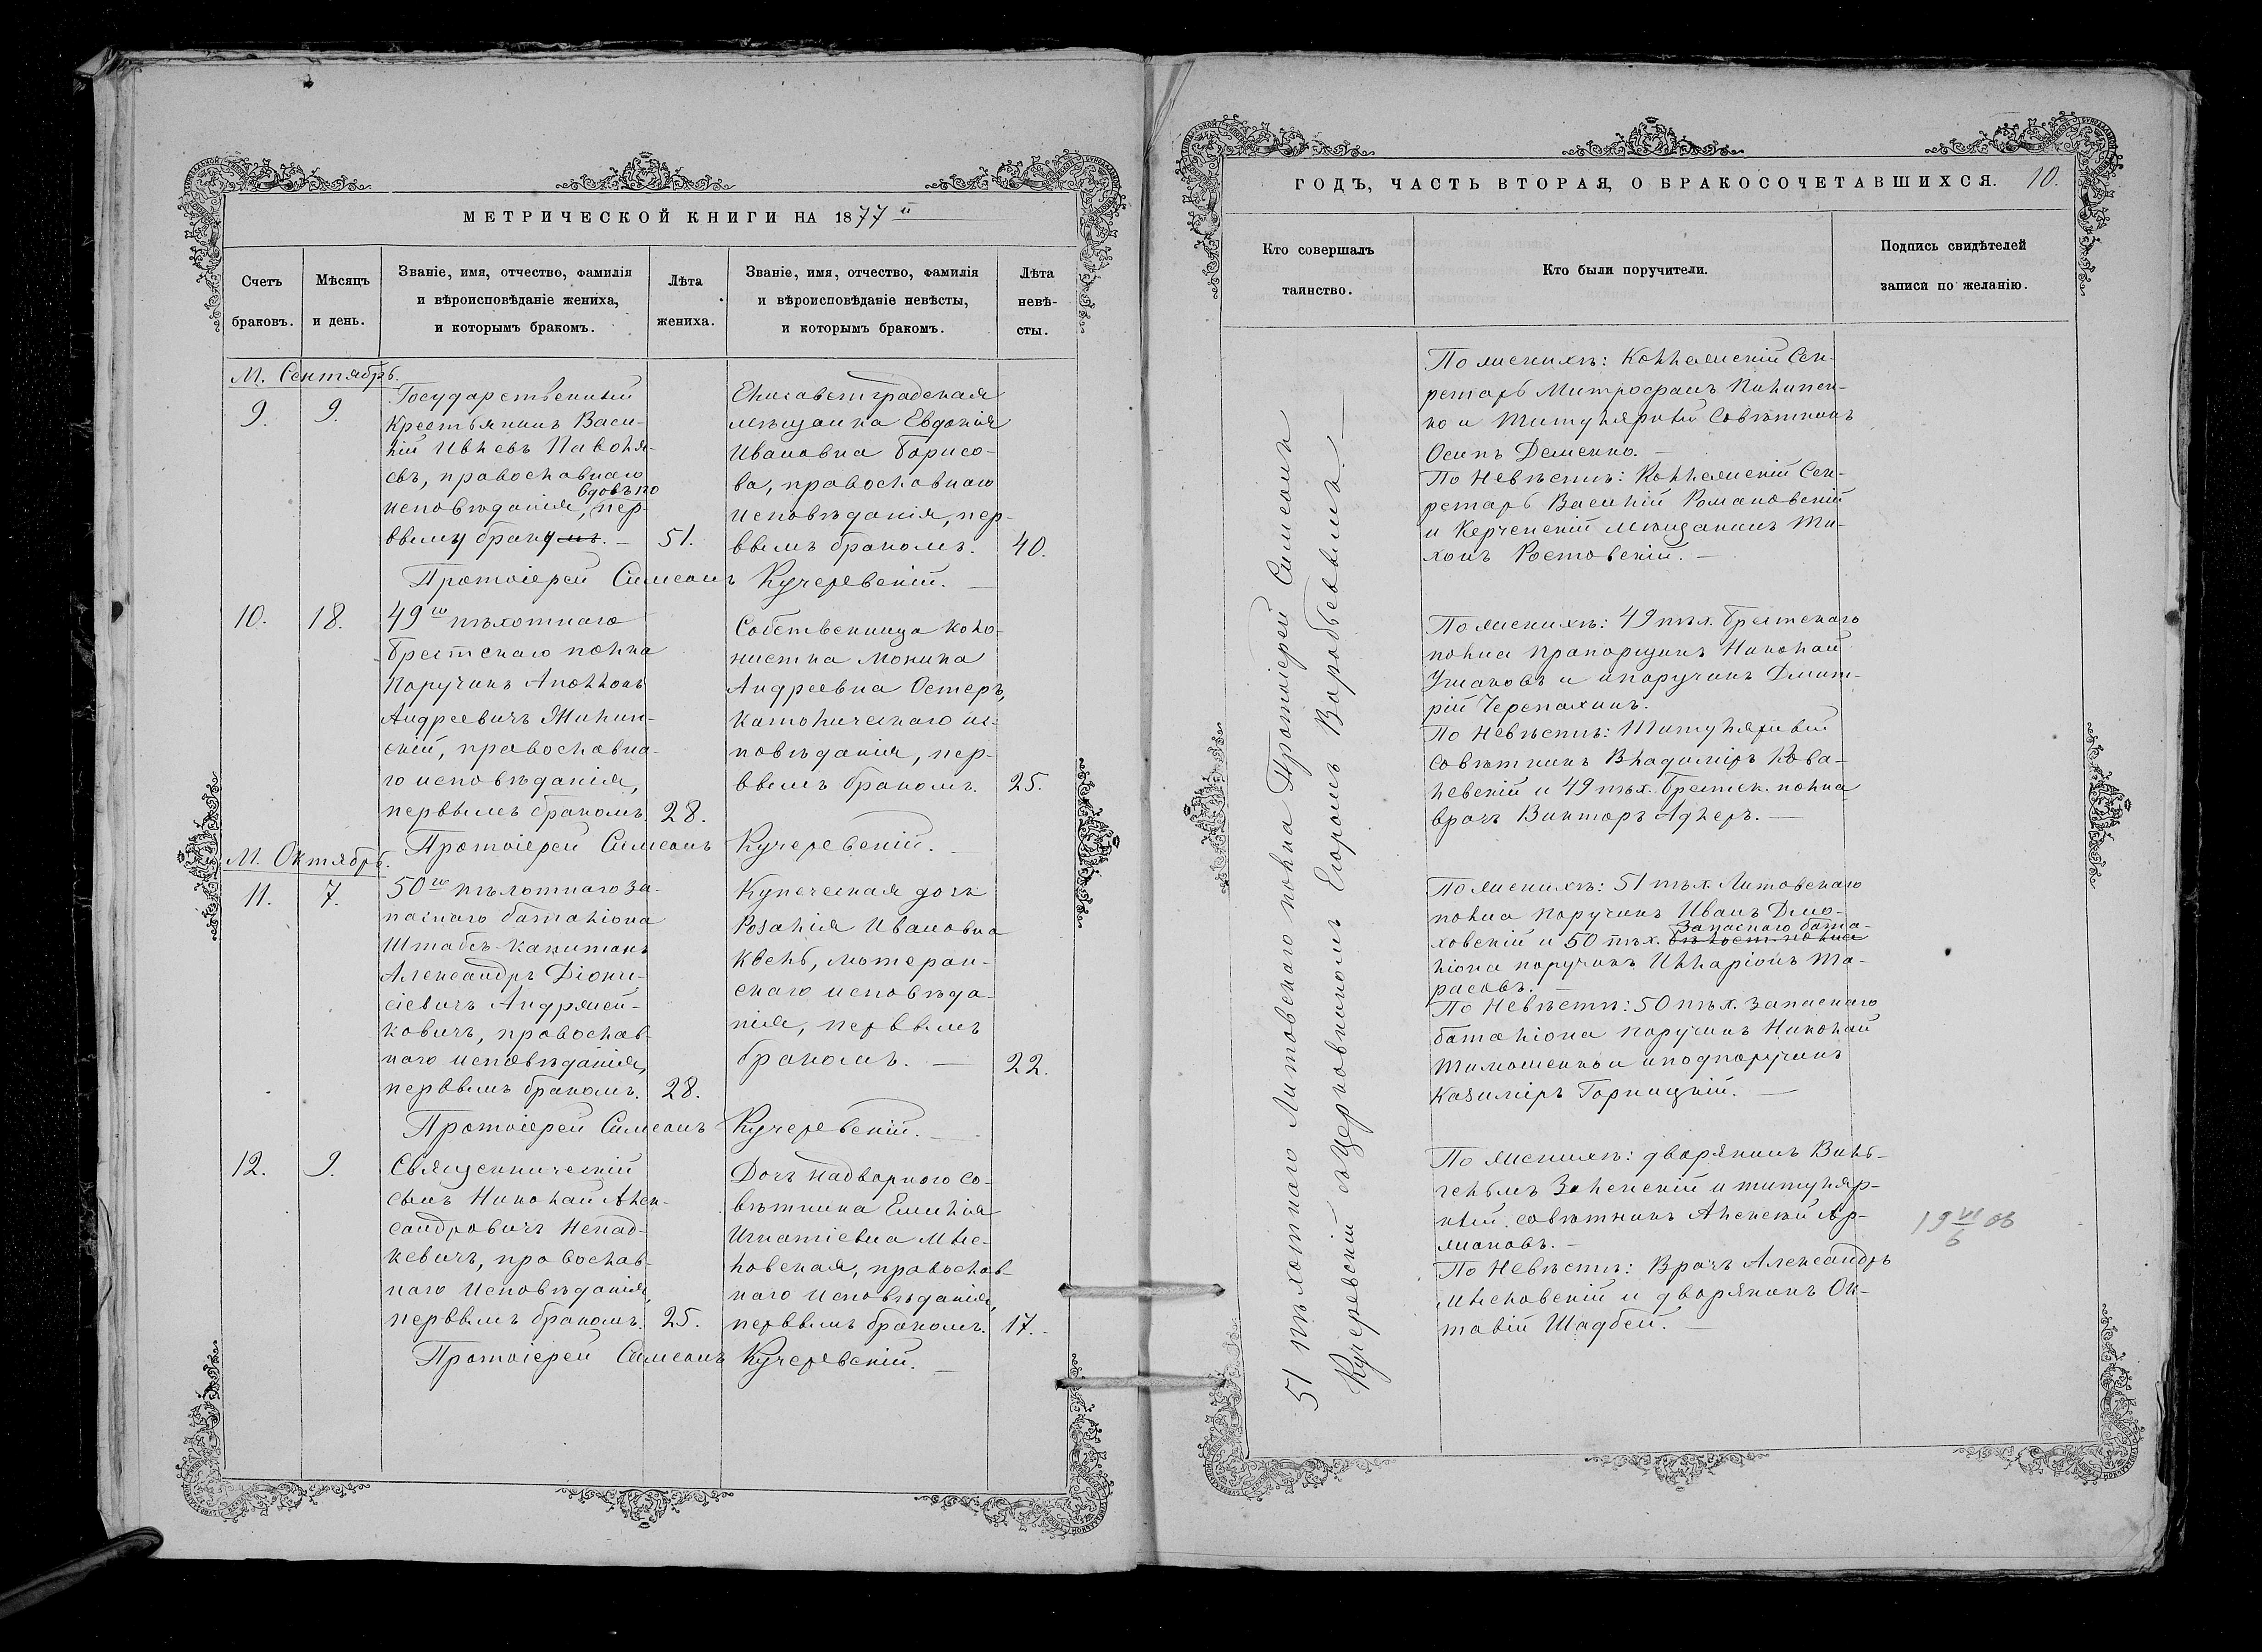 МЕТРИЧЕСКОЙ КНИГИ НА 1877 й
Счетъ браковъ.
Мѣсяцъ и день.
Званіе, имя, отчество, фамилія
и вѣроисповѣданіе жениха,
и которымъ бракомъ.
Лѣта жениха.
Званіе, имя, отчество, фамилія
и вѣроисповѣданіе невѣсты,
и которымъ бракомъ.
Лѣта невѣ-
сты.
М. Сентябрь.
9.
9.
Государственный
Крестьянинъ Васи-
лій Ивлевъ Паволя-
евъ, православнаго
вдовъ по
исповѣданія, пер-
вому браку.
51.
Елисаветградская
мѣщанка Евдокія
Ивановна Борисо-
ва, православнаго
исповѣданія, пер-
вымъ бракомъ.
40.
Протоіерей Симеонъ Кучеревскій.
10.
18.
49го пѣхотнаго
Брестскаго полка
Поручикъ Аполлонъ
Андреевичъ Жилин-
скій, православна-
го исповѣданія,
первымъ бракомъ.
28.
Собственница Коло-
нистка Моника
Андреевна Остеръ,
Католическаго ис-
повѣданія, пер-
вымъ бракомъ.
25.
Протоіерей Симеонъ Кучеревскій.
М. Октябрь.
11.
7.
50го пѣхотнаго за-
паснаго баталіона
Штабсъ-Капитанъ
Александръ Діони-
сіевичъ Андрейен-
ковичъ, православ-
наго исповѣданія,
первымъ бракомъ.
28.
Купеческая дочь
Розалія Ивановна
Квель, лютеран-
скаго исповѣда-
нія, первымъ
бракомъ.
22.
Протоіерей Симеонъ Кучеревскій.
12.
9.
Священническій
сынъ Николай Алек-
сандровичъ Ненад-
кевичъ, православ-
наго Исповѣданія,
первымъ бракомъ.
25.
Дочь Надворнаго Со-
вѣтника Емилія
Игнатіевна Мыс-
ловская, православ-
наго Исповѣданія,
первымъ бракомъ.
17.
Протоіерей Симеонъ Кучеревскій.
ГОДЪ, ЧАСТЬ ВТОРАЯ, О БРАКОСОЧЕТАВШИХСЯ. 10.
Кто совершалъ
таинство.
Кто были поручители.
Подпись свидѣтелей
записи по желанію.
51 пѣхотнаго Литовскаго полка Протоіерей Симеонъ
Кучеревскій съ Церковникомъ Егоромъ Воробьевымъ.
По женихѣ: Коллежскій Сек-
ретарь Митрофанъ Пилипен-
ко и Титулярный Совѣтникъ
Осипъ Деменко.
По Невѣстѣ: Коллежскій Сек-
ретарь Василій Романовскій
и Керченскій мѣщанинъ Ти-
хонъ Ростовскій.
По женихѣ: 49 пѣх. Брестскаго
полка Прапорщикъ Николай
Ушаковъ и и поручикъ Дмит-
рій Черепахинъ.
По Невѣстѣ: Титулярный
Совѣтникъ Владиміръ Кова-
левскій и 49 пѣх. Брестск. полка
врачъ Викторъ Адлеръ.
По женихѣ: 51 пѣх. Литовскаго
полка Поручикъ Иванъ Дмо-
Запаснаго бата-
ховскій и 50 пѣх. Бѣлост. полка
ліона поручикъ Илларіонъ Та-
расовъ.
По Невѣстѣ: 50 пѣх. Запаснаго
баталіона поручикъ Николай
Тимошенко и подпоручикъ
Казиміръ Горницкій.
По женихѣ: дворянинъ Виль-
гельмъ Зеленскій и титуляр-
ный совѣтникъ Алексѣй Ар-
мановъ.
По Невѣстѣ: Врачъ Александръ
Мысловскій и дворянинъ Ок-
тавій Шадбей.
19 VI/6 06